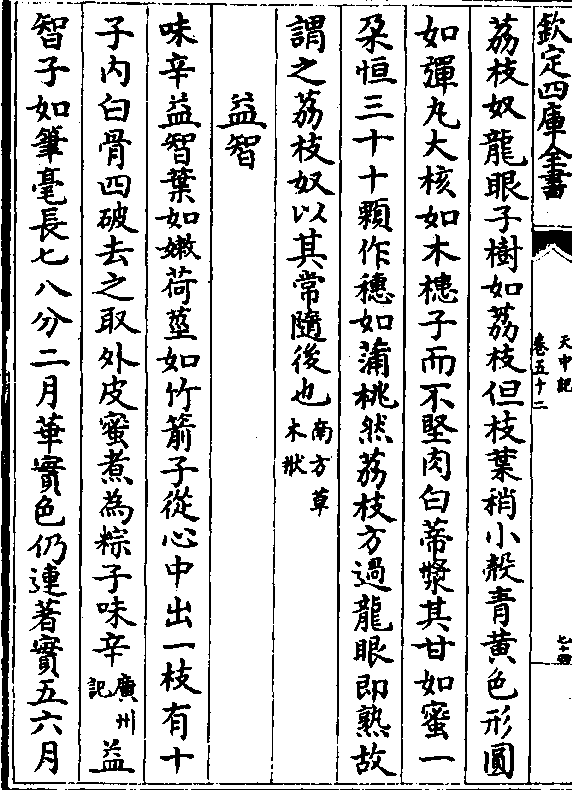 欽定四庫全書
天中記
卷五十二
七十四
荔枝奴龍眼子樹如荔枝但枝葉稍小殻青黄色形圓
如彈丸大核如木槵子而不堅肉白蔕漿其甘如蜜一
朶恒三十十顆作穗如蒲桃然荔枝方過龍眼即熟故
謂之荔枝奴以其常隨後也南方草
木狀
益智
味辛益智葉如嫩荷莖如竹箭子從心中出一枝有十
子内白骨四破去之取外皮蜜煮為粽子味辛廣州
記益
智子如筆毫長七八分二月華實色仍連著實五六月